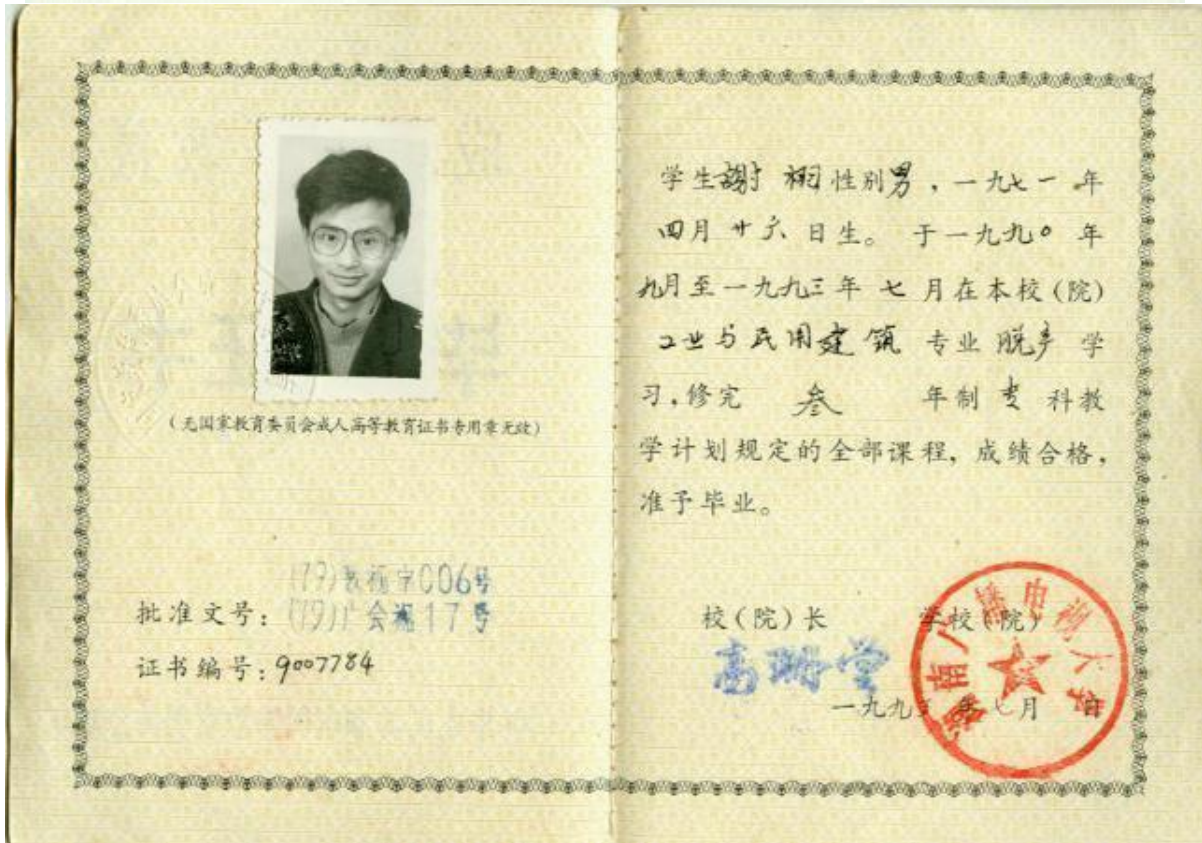 (无国家教育委员会成人高等教育证书专用章无效)
(79)教福字006号
批准文号: (79)广会湘17号
证书编号: 9007784
学生謝栩性别男,一九七一年
四月廿六日生。于一九九〇年
九月至一九九三年七月在本校(院)
工业与民用建筑专业脱产学
习,修完叁年制专科教
学计划规定的全部课程,成绩合格,
准予毕业。
校(院)长 学校(院)
湖南广播电视大学
一九九三年七月 日